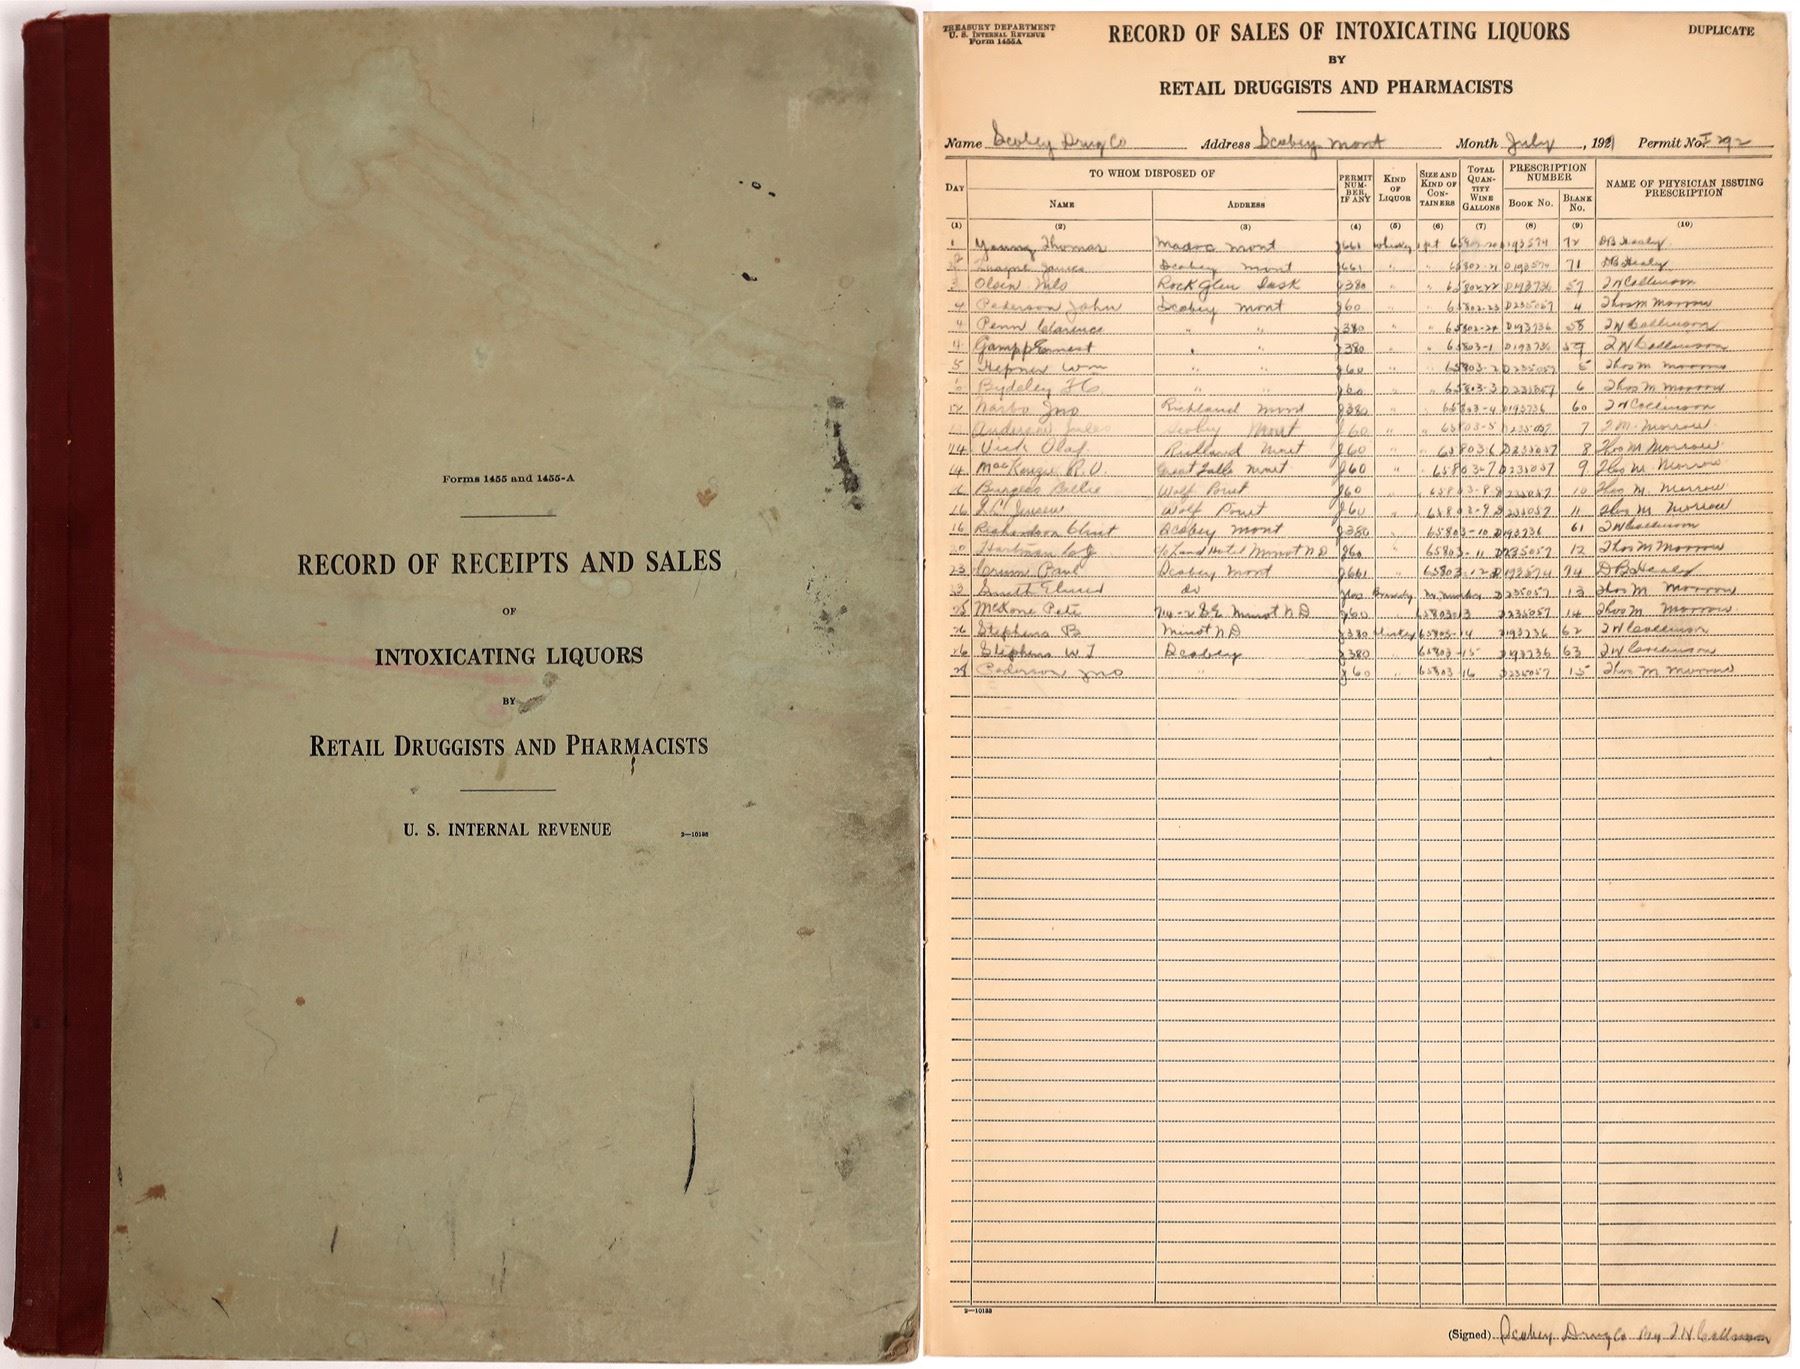 Forms 1455 and 1455-A
RECORD OF RECEIPTS AND SALES
OF
INTOXICATING LIQUORS
BY
RETAIL DRUGGISTS AND PHARMACISTS
U. S. INTERNAL REVENUE 2—10188
TREASURY DEPARTMENT
U. S. INTERNAL REVENUE
Form 1455A
RECORD OF SALES OF INTOXICATING LIQUORS
DUPLICATE
BY
RETAIL DRUGGISTS AND PHARMACISTS
Name Scobey Drug Co Address Scobey Mont Month July, 1921 Permit No. I 292
DAY TO WHOM DISPOSED OF PERMIT NUMBER, IF ANY KIND OF LIQUOR SIZE AND KIND OF CONTAINERS TOTAL QUANTITY WINE GALLONS PRESCRIPTION NUMBER NAME OF PHYSICIAN ISSUING PRESCRIPTION
NAME ADDRESS BOOK No. BLANK No.
(1) (2) (3) (4) (5) (6) (7) (8) (9) (10)
1 Young Thomas Madoc Mont J661 Whiskey 1 pt D193574 72 DB Healy
James Scobey Mont J661 " " 65802-21 D193574 71 DB Healy
3 Olsen Nels Rock Glen Sask J380 " " 65802-22 D193736 57 JN Collinson
4 Pederson John Scobey Mont J60 " " 65802-23 D235057 4 Thos M Morrow
4 Penn Clarence " " J380 " " 65802-24 D193736 58 JN Collinson
4 Gampp Ernest " " J380 " " 65803-1 D193736 59 JN Collinson
5 Hepner Wm " " J60 " " 65803-2 D235057 5 Thos M Morrow
" " J60 " " 65803-3 6 Thos M Morrow
12 Narbo Jno Richland Mont J380 " " 65803-4 D193736 60 JN Collinson
Anderson Jules Scobey Mont J60 " " 65803-5 D235057 7 T M Morrow
14 Vick Olaf Richland Mont J60 " " 65803-6 D235057 8 Thos M Morrow
14 MacKenzie R.O. Great Falls Mont J60 " " 65803-7 D235057 9 Thos M. Morrow
16 Burgess Billie Wolf Point J60 " 65803-8 D235057 10 Thos M. Morrow
16 Jensen Wolf Point J60 " 65803-9 D235057 11 Thos M. Morrow
16 Richardson Clint Scobey Mont J380 " 65803-10 D193736 61 JN Collinson
20 Hartman Hotel Minot N D J60 " 65803-11 D235057 12 Thos M Morrow
23 Crum Paul Scobey Mont J661 " 65803-12 D193574 74 D B Healy
Smith Elmer do Brandy D235057 13 Thos M Morrow
25 McKone Pete Minot N D J60 " 65803-13 D235057 14 Thos M Morrow
26 Stephens B Minot N D J380 Whiskey 65803-14 D193736 62 JN Collinson
26 Stephens W J Scobey J380 " 65803-15 D193736 63 JN Collinson
Pederson Jno " J60 " 65803-16 D235057 15 Thos M Morrow
2—10188
(Signed) Scobey Drug Co By JN Collinson